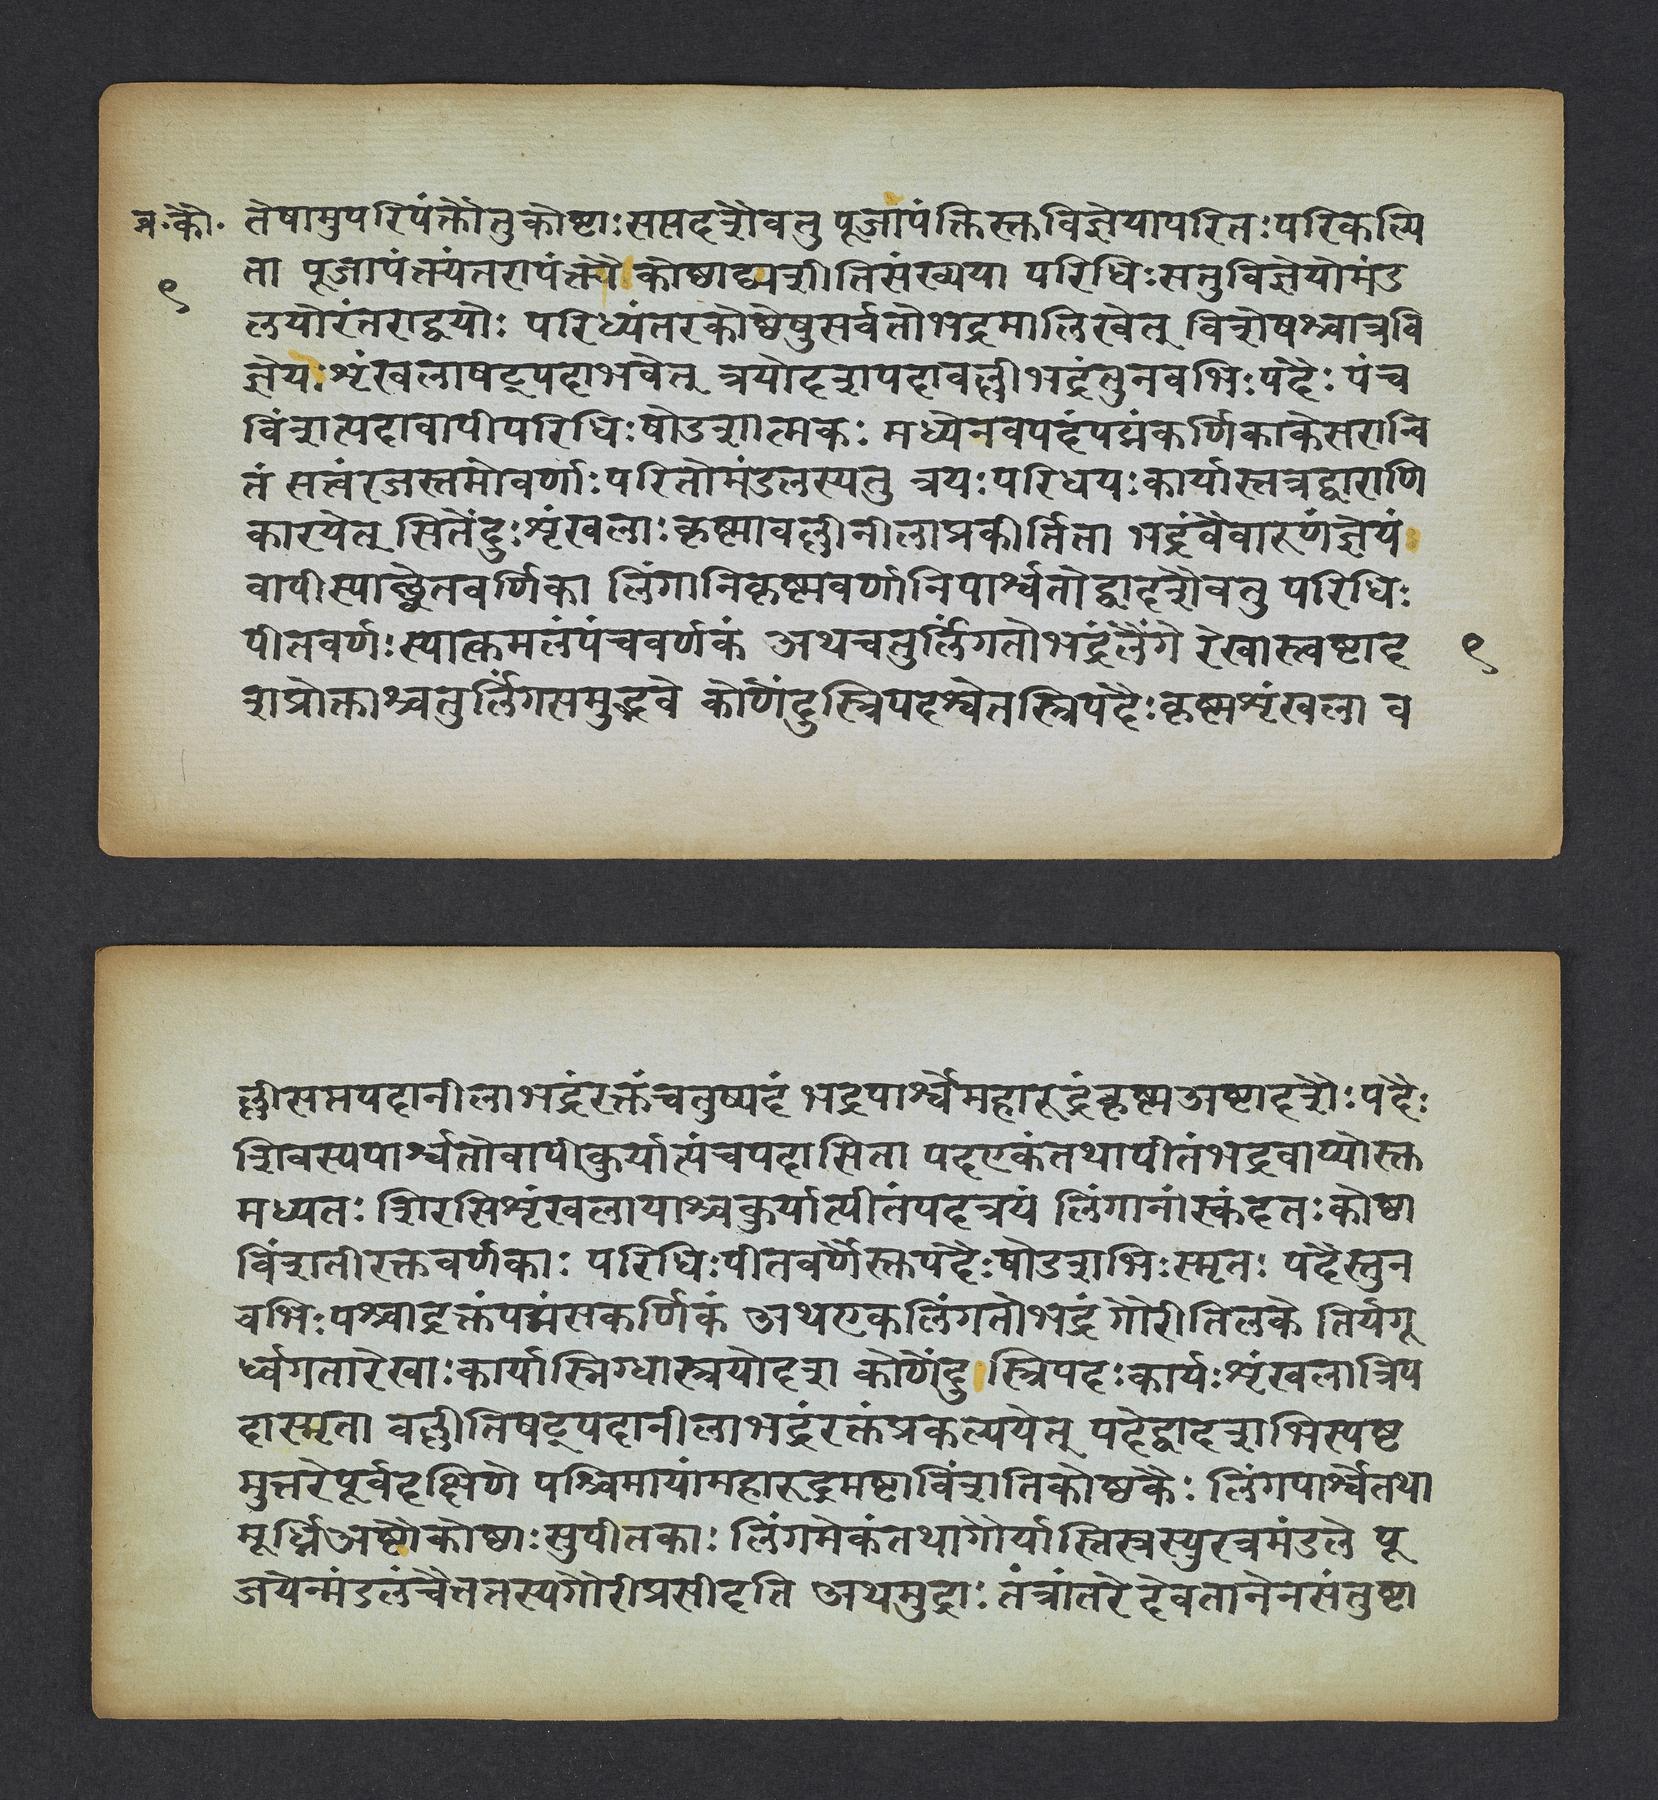 व्र.कौ. तेषामुपरिपंक्तौतुकोष्टाःसप्तदशैवतु पूजापंक्तिस्तविज्ञेयापरितःपरिकल्पि
ता पूजापंक्त्यंतरापंक्त्यौ कोष्ठाद्व्यशीतिसंख्यया परिधिःसतुविज्ञेयोमंड
९
लयोरंतराद्वयोः परिध्यंतरकोष्ठेषुसर्वतोभद्रमालिखेत् विशेषश्चात्रवि
ज्ञेयःशृंखलाषट्पदाभवेत् त्रयोदशपदावल्लीभद्रंतुनवभिःपदैः पंच
विंशत्पदावापीपरिधिःषोडशात्मकः मध्येनवपदंपद्मंकर्णिकाकेसरान्वि
तं सत्त्वंरजस्तमोवर्णाःपरितोमंडलस्यतु त्रयःपरिधयःकार्यास्तत्रद्वाराणि
कारयेत् सितेंदुःशृंखलाःकृष्णावल्लीनीलाप्रकीर्तिता भद्रंवैवारुणंज्ञेयं
वापीस्याच्छ्वेतवर्णिका लिंगानिकृष्णवर्णानिपार्श्वतोद्वादशैवतु परिधिः
पीतवर्णःस्यात्कमलंपंचवर्णकं अथचतुर्लिंगतोभद्रंलैंगे रेखास्त्वष्टाद
९
शप्रोक्ताश्चतुर्लिंगसमुद्भवे कोणेंदुस्त्रिपदश्वेतस्त्रिपदैःकृष्णशृंखला व
ल्लीसप्तपदानीलाभद्रंरक्तंचतुष्पदं भद्रपार्श्वेमहारुद्रंकृष्णअष्टादशैःपदैः
शिवस्यपार्श्वतोवापीकुर्यात्पंचपदासिता पदएकंतथापीतंभद्रवाप्योस्त
मध्यतः शिरसिशृंखलायाश्चकुर्यात्पीतंपदत्रयं लिंगानांस्कंदतःकोष्ठा
विंशतीरक्तवर्णकाः परिधिःपीतवर्णैस्तपदैःषोडशभिःस्मृतः पदैस्तुन
वभिःपश्चाद्रक्तंपद्मंसकर्णिकं अथएकलिंगतोभद्रं गौरीतिलके तिर्यगू
र्ध्वगतारेखाःकार्यास्निग्धास्त्रयोदश कोणेंदु स्त्रिपदःकार्यःशृंखलात्रिप
दास्मृता वल्लीतिषट्पदानीलाभद्रंरक्तंप्रकल्पयेत् पदेद्वादशभिस्पष्ट
मुत्तरेपूर्वदक्षिणे पश्चिमायांमहारुद्रमष्टाविंशतिकोष्ठकैः लिंगपार्श्वेतथा
मूर्ध्निअष्टौकोष्ठाःसुपीतकाः लिंगमेकंतथागौर्यास्तिस्त्रस्युरत्रमंडले पू
जयेन्मंडलंचैततस्यगौरीप्रसीदति अथमुद्राः तंत्रांतरे देवतानेनसंतुष्टा